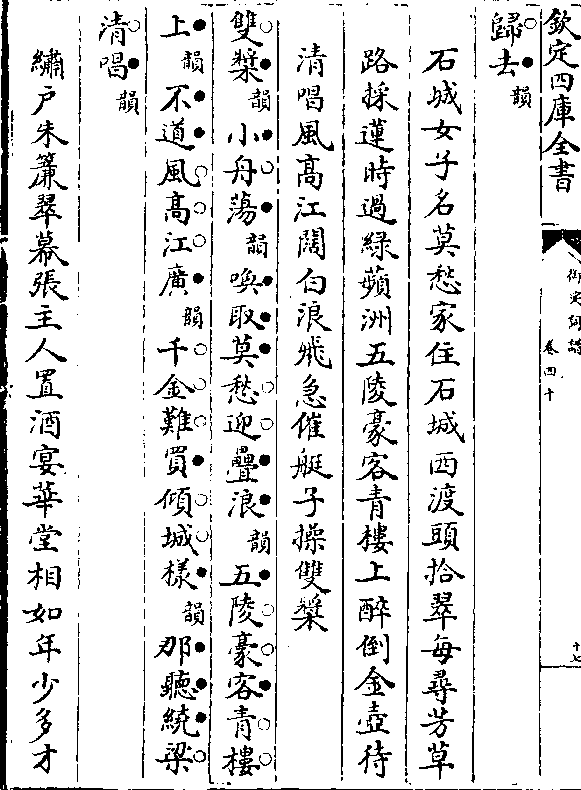 欽定四庫全書
御定詞譜
卷四十
十七
歸去韻
石城女子名莫愁家住石城西渡頭拾翠每尋芳草
路採蓮時過綠蘋洲五陵豪客青樓上醉倒金壺待
清唱風高江闊白浪飛急催艇子操雙槳
雙槳韻小舟蕩韻喚取莫愁迎疊浪韻五陵豪客青樓
上韻不道風高江廣韻千金難買傾城樣韻那聽繞梁
清唱韻
繡户朱簾翠幕張主人置酒宴華堂相如年少多才